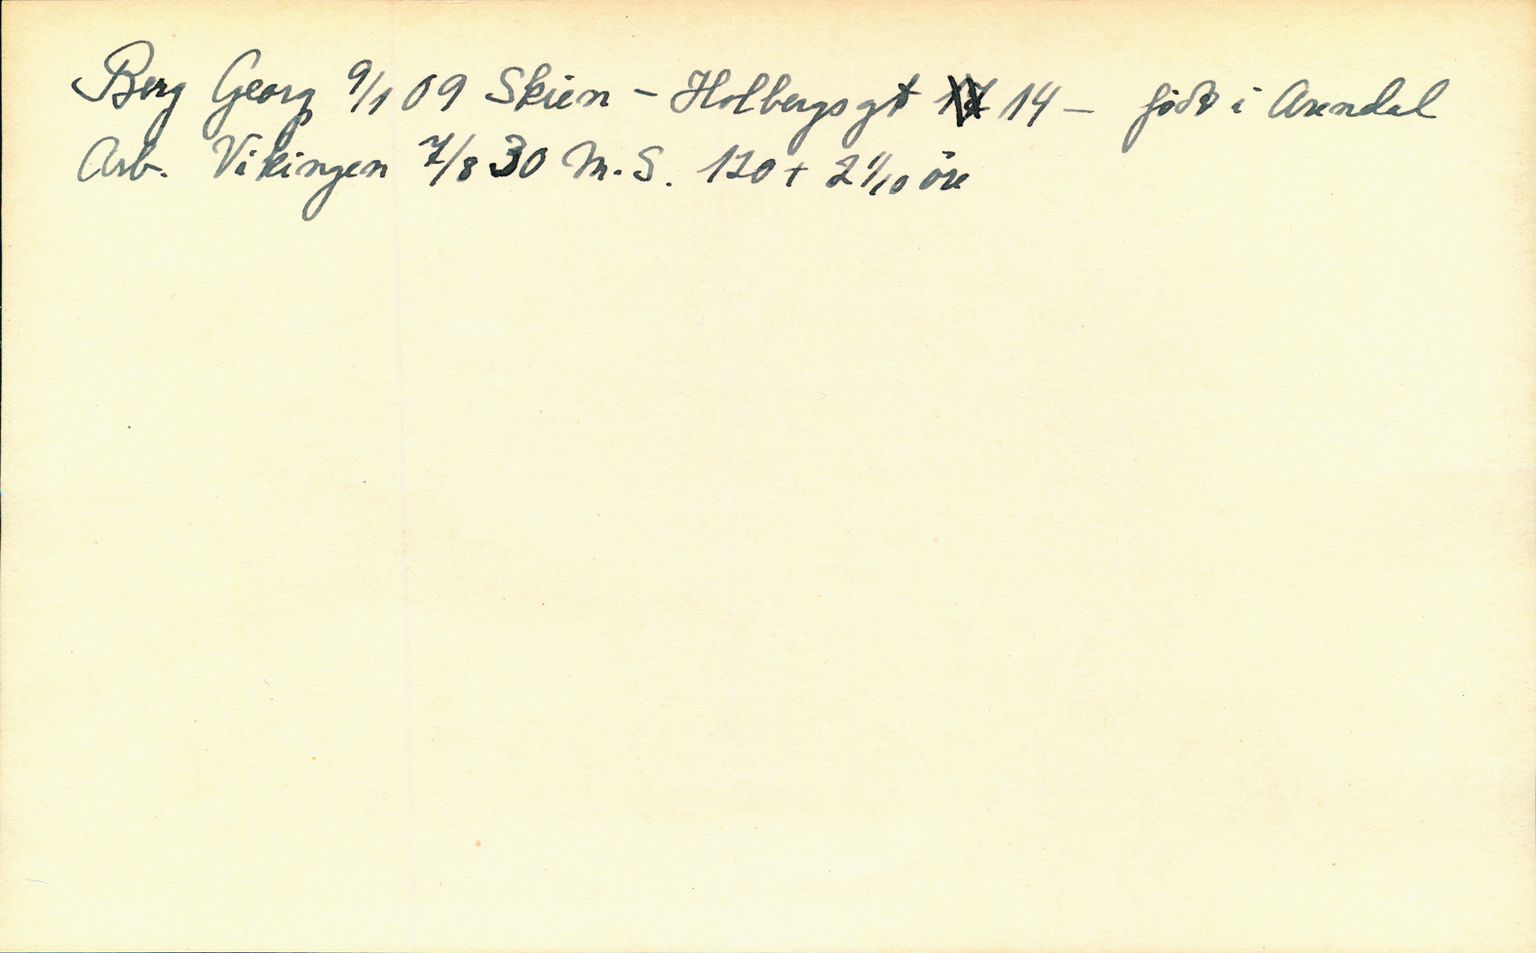 Berg Georg 9/1 09 Skien - Holbergsgt 14 - född i Arendal
Arb. Vikingen 7/8 30 M.S. 120 + 2 1/10 öre